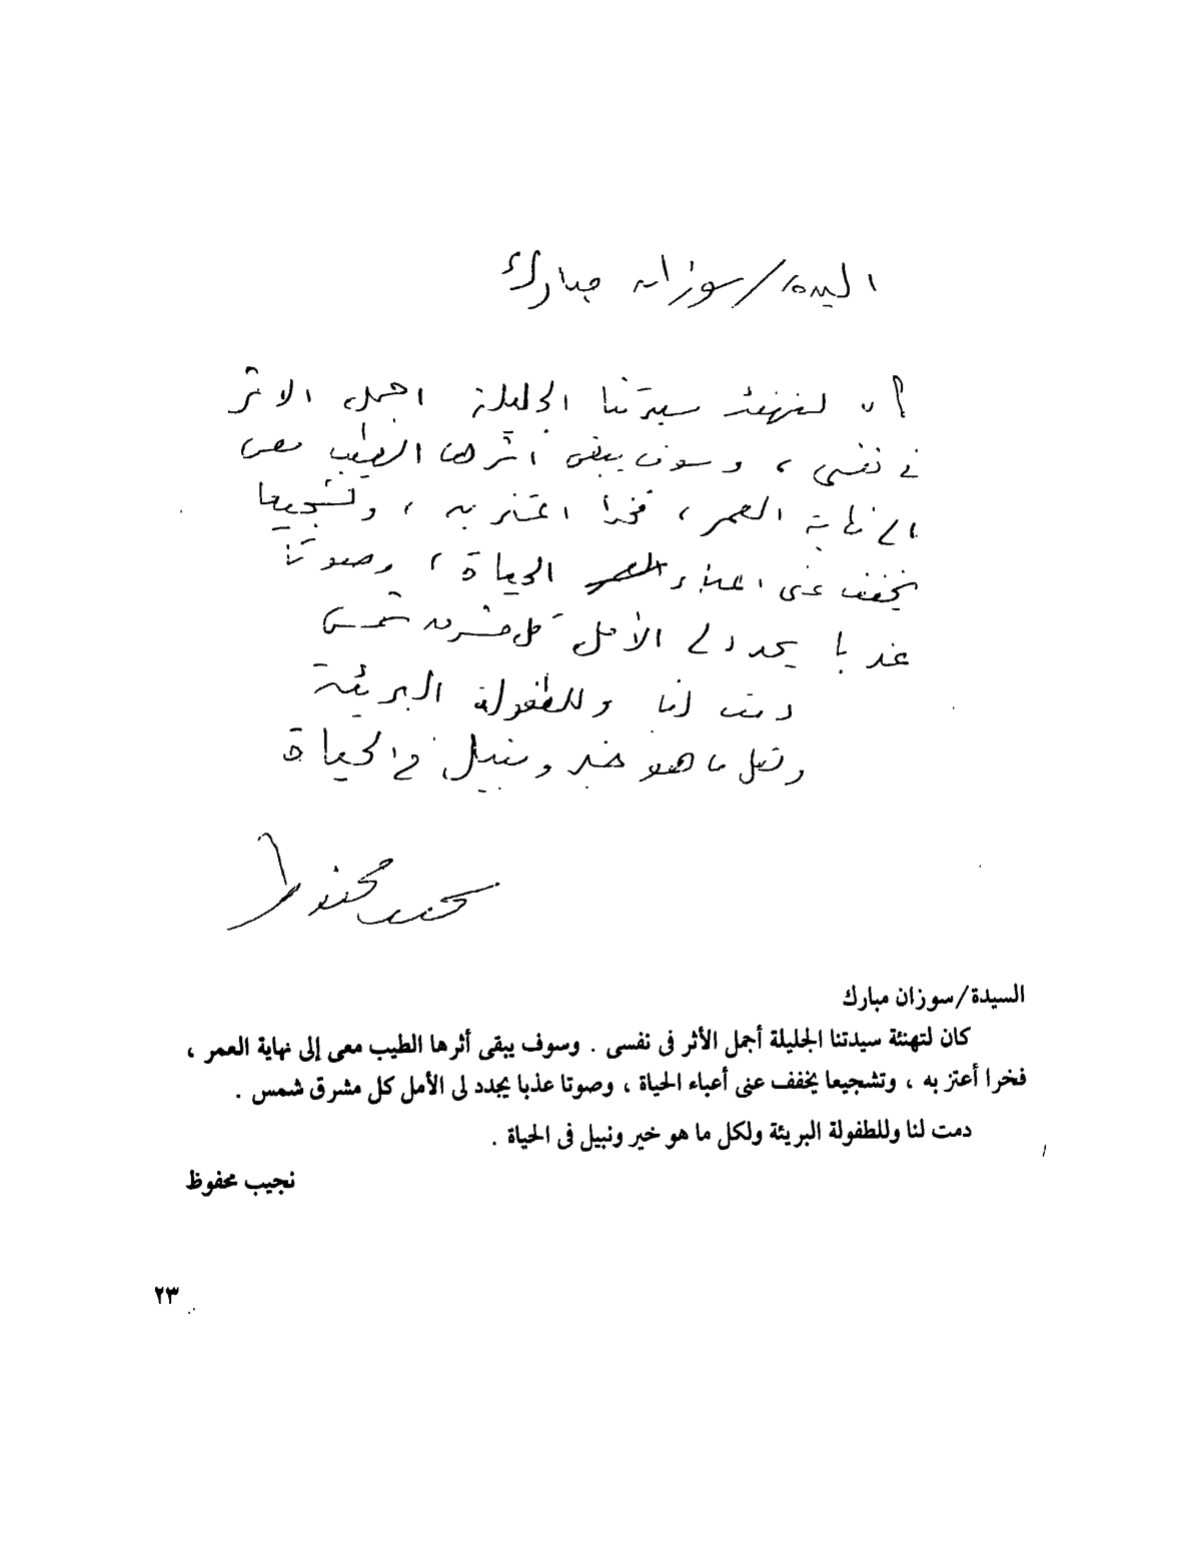 السيدة/سوزان مبارك
كان لتهنئة سيدتنا الجليلة اجمل الاثر
فى نفسى ، وسوف يبقى أثرها الطيب معى
الى نهاية العمر ، فخرا اعتز به ، وتشجيعا
يخفف عنى اعباء العمر الحياة ، وصوتا
عذبا يجدد لى الأمل كل مشرق شمس
دمت لنا وللطفولة البريئة
ولكل ما هو خير ونبيل فى الحياة
نجيب محفوظ
السيدة/سوزان مبارك
كان لتهنئة سيدتنا الجليلة أجمل الأثر فى نفسى . وسوف يبقى أثرها الطيب معى إلى نهاية العمر ،
فخرا أعتز به ، وتشجيعا يخفف عنى أعباء الحياة ، وصوتا عذبا يجدد لى الأمل كل مشرق شمس .
دمت لنا وللطفولة البريئة ولكل ما هو خير ونبيل فى الحياة .
نجيب محفوظ
٢٣